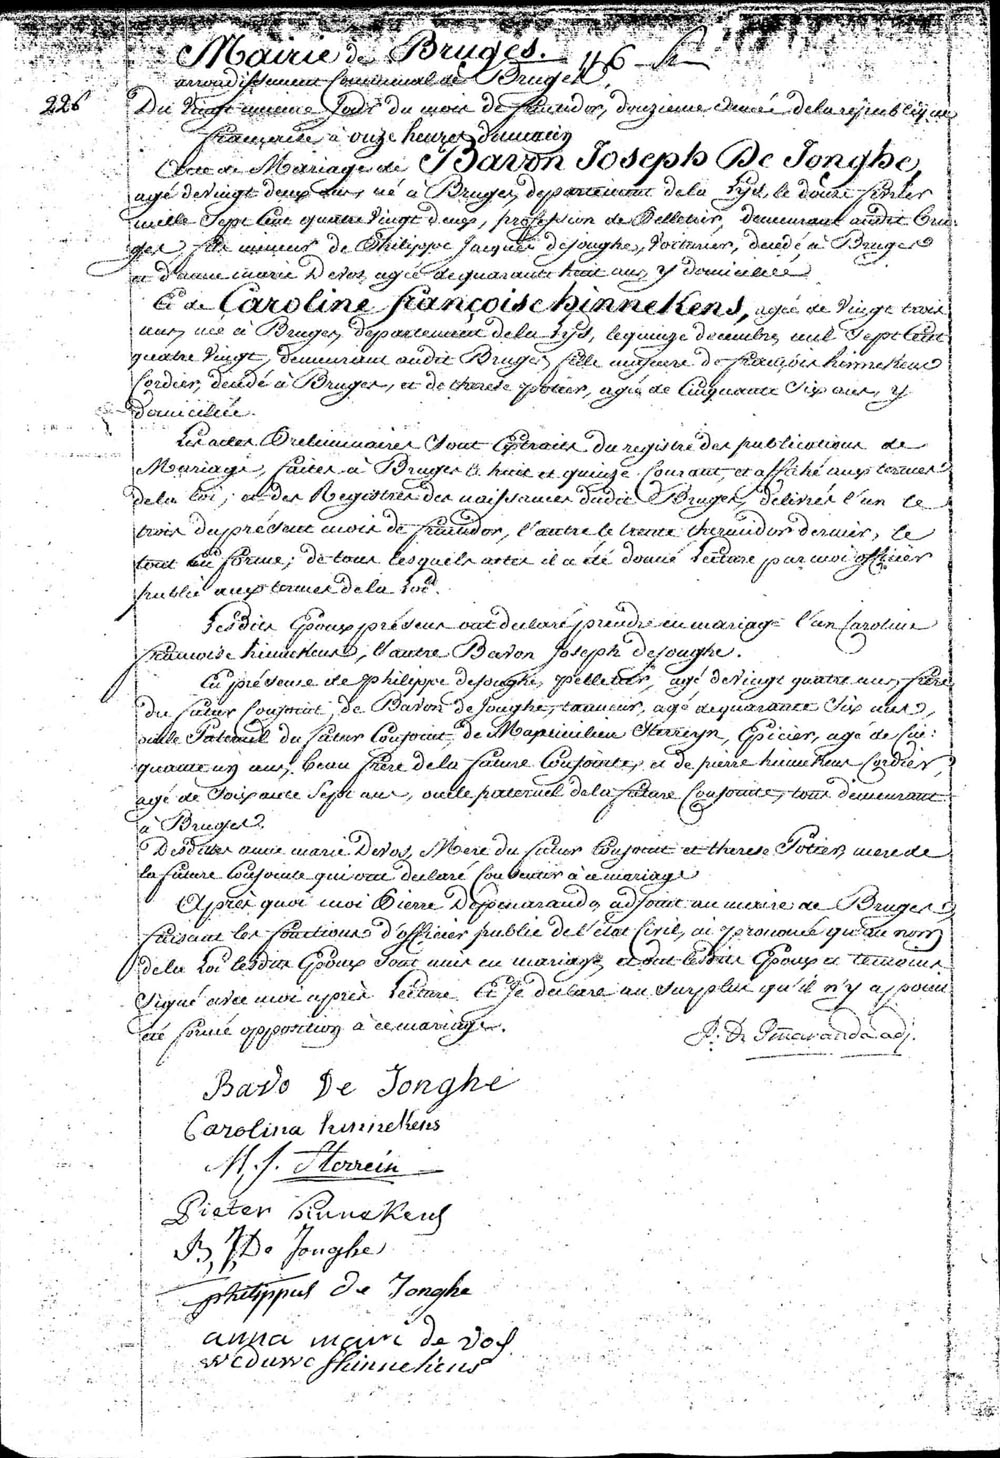 Mairie de Bruges. 46
arrondissement Communal de Bruges,
226
Du vingt unieme Jour du mois de fructidor, douzieme année de la république
française, à onze heures du matin
Acte de Mariage de Bavon Joseph De Jonghe,
agé de vingt deux ans, né à Bruges, departement de la Lys, le douze fevrier
mille Sept Cent quatre Vingt deux, profession de Pelletier, demeurant audit Bru-
ges, fils mineur de Philippe Jacques deJonghe, Voiturier, decedé à Bruges
et d'anne marie Devos, agée de quarante huit ans, y domiciliée
Et de Caroline françoise hinnekens, agée de Vingt trois
ans, née à Bruges, departement de la Lys, le quinze decembre, mil Sept Cent
quatre Vingt, demeurant audit Bruges, fille majeure de françois hinnekens
Cordier, decedé à Bruges, et de therese potier, agée de Cinquante Six ans, y
domiciliée.
Les actes Preliminaires Sont Extraits du registre des publications de
Mariage, faites à Bruges le huit et quinze Courant, et affiché aux termes
de la loi; et des Registres des naissances dudit Bruges, délivrés l'un le
trois du présent mois de fructidor, l'autre le trente thermidor dernier, le
tout en forme; de tous lesquels actes il a été donné Lecture par moi officier
public aux termes de la Loi.
Lesdits Epoux présens ont declaré prendre en mariage l'un Caroline
francoise hinnekens, l'autre Bavon Joseph deJonghe.
En présence de philippe deJonghe, pelletier, agé de vingt quatre ans, frère
du futur Conjoint, de Bavon deJonghe, tanneur, agé de quarante Six ans,
oncle Paternel du futur Conjoint, de Maximilien Sterreyn, Epicier, agé de Cin-
quante un ans, beau frère de la future Conjointe, et de pierre hinnekens Cordier,
agé de Soixante Sept ans, oncle paternel de la future Conjointe, tous demeurant
à Bruges.
Desdites anne marie Devos, Mere du futur Conjoint et therese Potier, mere de
la future Conjointe qui ont declaré Consentir à ce mariage
Après quoi moi Pierre Depenaranda adjoint au maire de Bruges
faisant les fonctions d'officier public de l'état Civil, ai prononcé qu'au nom
de la Loi lesdits Epoux Sont unis en mariage, et ont lesdits Epoux et temoins
Signé avec moi après Lecture. Et Je declare au Surplus qu'il n'y a point
été formé opposition à ce mariage.
P. De Pñaranda adj.
Bavo De Jonghe
Carolina hinnekens
M. J. Sterrein
Pieter hinnekens
B J De Jonghe
philippus de Jonghe
anna mari de vos
weduwe hinnekens